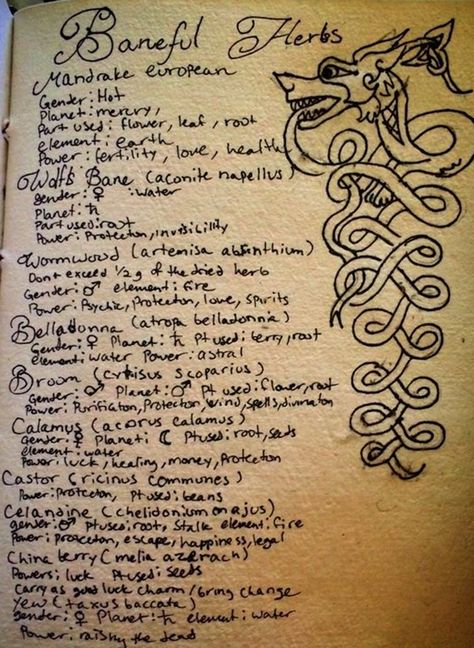 Baneful Herbs
Mandrake european
Gender: Hot
Planet: mercry,
Part used: flower, leaf, root
element: earth
Power: fertility, love, health
Wolfs Bane (aconite napellus)
gender: ♀ : water
Planet: ♄
Part used: root
Power: Protection, invisibility
Wormwood (artemisa absinthium)
Dont exceed 1/2 g of the dried herb
Gender: ♂ element: fire
Power: Psychic, Protection, love, spirits
Belladonna (atropa belladonnia)
Gender: ♀ Planet: ♄ Pt used: berry, root
element: water Power: astral
Broom (cytisus scoparius)
Gender: ♂ Planet: ♂ Pt used: flower, root
Power: Purification, Protection, wind, spells, divination
Calamus (acorus calamus)
Gender: ♀ Planet: ☾ Pt used: root, seeds
element: water
Power: luck, healing, money, Protection
Castor (ricinus communes)
Power: Protection, Pt used: beans
Celandine (chelidonium majus)
gender: ♂ Pt used: root, stalk element: fire
Power: protection, escape, happiness, legal
China berry (melia azerach)
Powers: luck Pt used: seeds
Carry as good luck charm / bring change
Yew (taxus baccata)
gender: ♀ Planet: ♄ element: water
Power: raising the dead